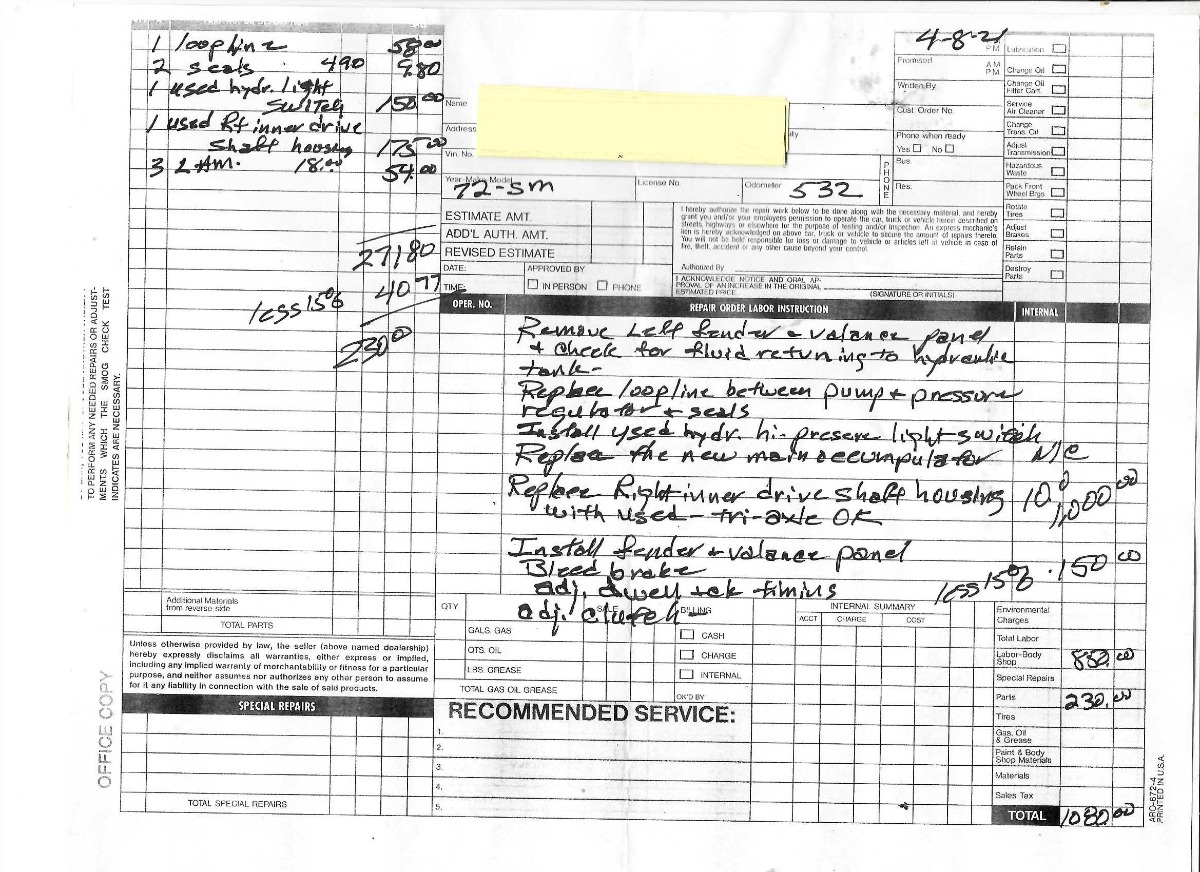 1 loopline 58.00
2 seals 490 9.80
1 used hydr. light
switch 150.00
1 used Rt inner drive
shaft housing 175.00
3 LAM. 18.00 54.00
271 80
less 15% 40 77
230 00
Additional Materials
from reverse side
TOTAL PARTS
Unless otherwise provided by law, the seller (above named dealership)
hereby expressly disclaims all warranties, either express or implied,
including any implied warranty of merchantability or fitness for a particular
purpose, and neither assumes nor authorizes any other person to assume
for it any liability in connection with the sale of said products.
SPECIAL REPAIRS
TOTAL SPECIAL REPAIRS
TO PERFORM ANY NEEDED REPAIRS OR ADJUST-
MENTS WHICH THE SMOG CHECK TEST
INDICATES ARE NECESSARY.
OFFICE COPY
4-8-21
PM
Promised
AM
PM
Written By
Cust. Order No.
Phone when ready
Yes No
PHONE
Bus.
Res.
Name
Address
Vin. No.
Year-Make-Model 72-SM
License No.
Odometer 532
Lubrication
Change Oil
Change Oil
Filter Cart.
Service
Air Cleaner
Change
Trans. Oil
Adjust
Transmission
Hazardous
Waste
Pack Front
Wheel Brgs.
Rotate
Tires
Adjust
Brakes
Retain
Parts
Destroy
Parts
ESTIMATE AMT.
ADD'L AUTH. AMT.
REVISED ESTIMATE
DATE:
TIME:
APPROVED BY
IN PERSON PHONE
I hereby authorize the repair work below to be done along with the necessary material, and hereby
grant you and/or your employees permission to operate the car, truck or vehicle herein described on
streets, highways or elsewhere for the purpose of testing and/or inspection. An express mechanic's
lien is hereby acknowledged on above car, truck or vehicle to secure the amount of repairs thereto.
You will not be held responsible for loss or damage to vehicle or articles left in vehicle in case of
fire, theft, accident or any other cause beyond your control.
Authorized By
I ACKNOWLEDGE NOTICE AND ORAL AP-
PROVAL OF AN INCREASE IN THE ORIGINAL
ESTIMATED PRICE.
(SIGNATURE OR INITIALS)
OPER. NO. REPAIR ORDER LABOR INSTRUCTION INTERNAL
Remove Left fender & valance panel
+ check for fluid returning to hydraulic
tank-
Replace loopline between pump + pressure
regulator + seals
Install used hydr. hi-presere light switch
Replace the new main accumpulator N/C
Replace Right inner drive shaft housing 10.0 1,000 00
with used - tri-axle OK
Install fender + valance panel
Bleed brake less 15% 150 00
adj. dwell + ck timing
adj. clutch -
QTY
SALE
BILLING
GALS. GAS
QTS. OIL
LBS. GREASE
TOTAL GAS OIL GREASE
CASH
CHARGE
INTERNAL
OK'D BY
INTERNAL SUMMARY
ACCT CHARGE COST
Environmental
Charges
Total Labor
Labor-Body
Shop 850.00
Special Repairs
Parts 230.00
Tires
Gas, Oil
& Grease
Paint & Body
Shop Materials
Materials
Sales Tax
TOTAL 1080.00
RECOMMENDED SERVICE:
1.
2.
3.
4.
5.
ARO-672-4
PRINTED IN U.S.A.